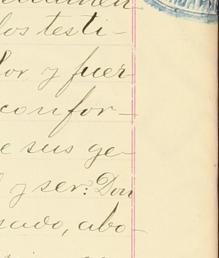 los testi-
lor y fuer
confor-
e sus ge-
y ser: Don
sado, abo-